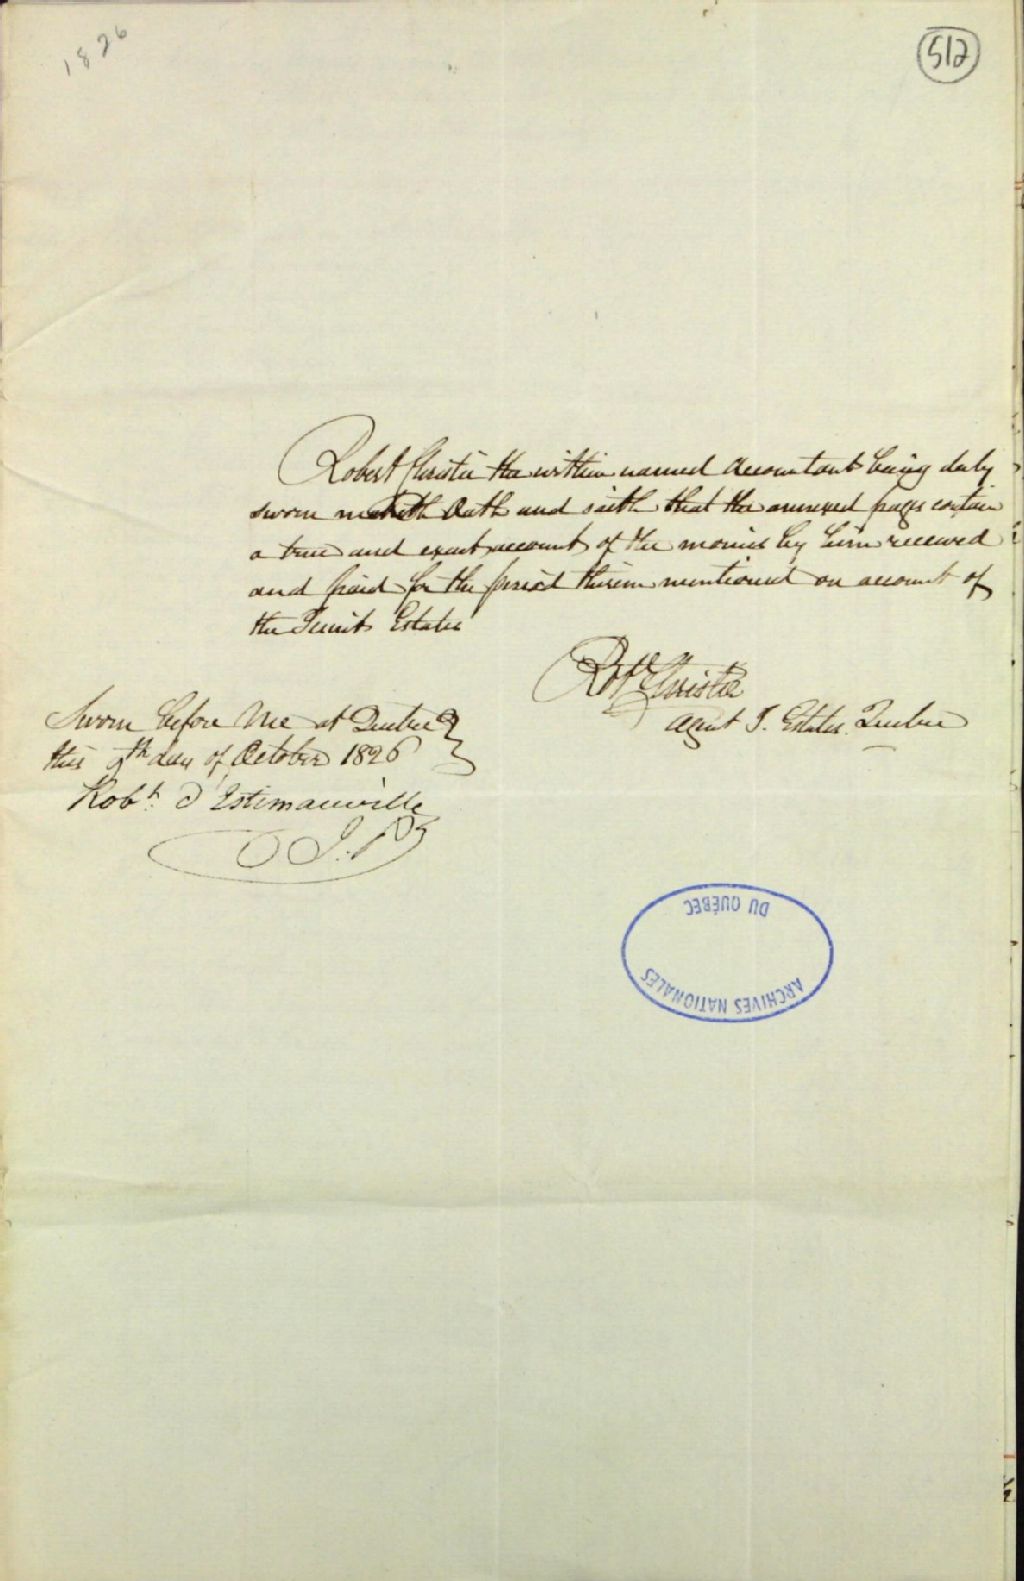 1826
512
Robert Christie the within named accountant being duly
sworn maketh Oath and saith that the annexed pages contain
a true and exact account of the monies by him received
and paid for the period therein mentioned on account of
the Jesuits Estates
Robt Christie
Agent J. Estates Quebec
Sworn before Me at Quebec
this 9th day of October 1826
Robt. d'Estimauville
J.P.
DU QUÉBEC
ARCHIVES NATIONALES